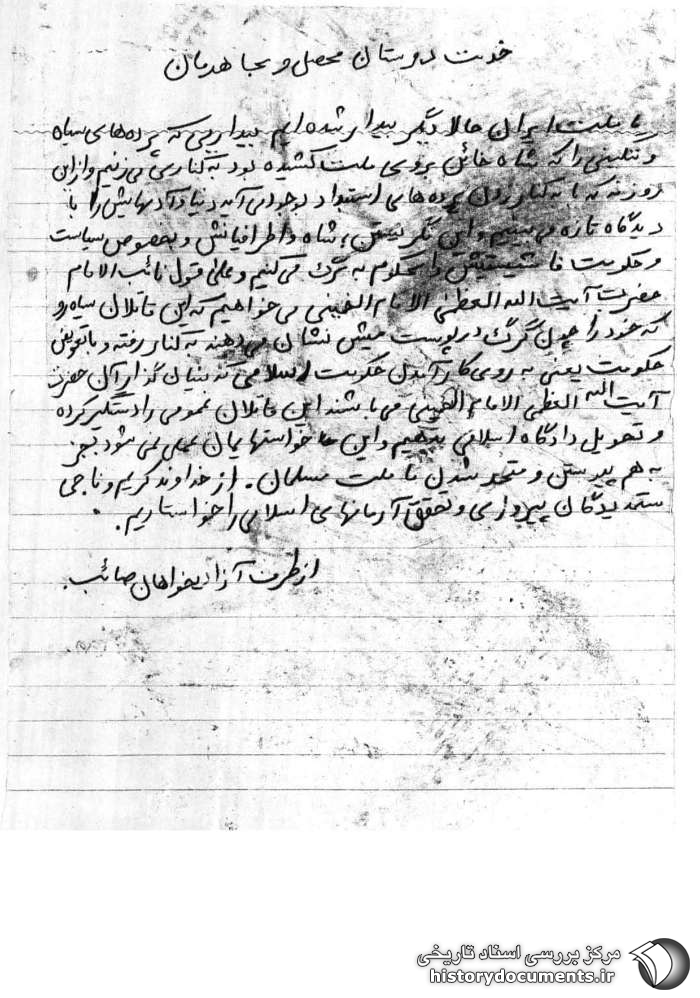 خدمت دوستان محصل و مجاهدمان
ما ملت ایران حالا دیگر بیدار شده ایم بیداریی که پرده‌های سیاه
و ننگینی را که شاه خائن بروی ملت کشیده بود به کناری می‌زنیم و از این
روزنه که با به کنار زدن پرده‌های استبداد بوجود می‌آید دنیا و آدمهایش را با
دیدگاه تازه می‌بینیم و این نگریستن، شاه و اطرافیانش و بخصوص سیاست
و حکومت فاشیستیش را محکوم به مرگ می‌کنیم و علی قول نائب الامام
حضرت آیت الله العظمی الامام الخمینی می‌خواهیم که این قاتلان سیاه‌رو
که خود را چون گرگ در پوست میش نشان می‌دهند به کنار رفته و با تعویض
حکومت یعنی به روی کار آمدن حکومت اسلامی که بنیان گذار آن حضرت
آیت الله العظمی الامام الخمینی می‌باشند این قاتلان عمومی را دستگیر کرده
و تحویل دادگاه اسلامی بدهیم و این خواستهایمان عملی نمی‌شود بجز
به هم پیوستن و متحد شدن ما ملت مسلمان. از خداوند کریم و ناجی
ستمدیدگان پیروزی و تحقق آرمانهای اسلامی را خواستاریم.
از طرف آزادیخواهان صائب.
مرکز بررسی اسناد تاریخی
historydocuments.ir